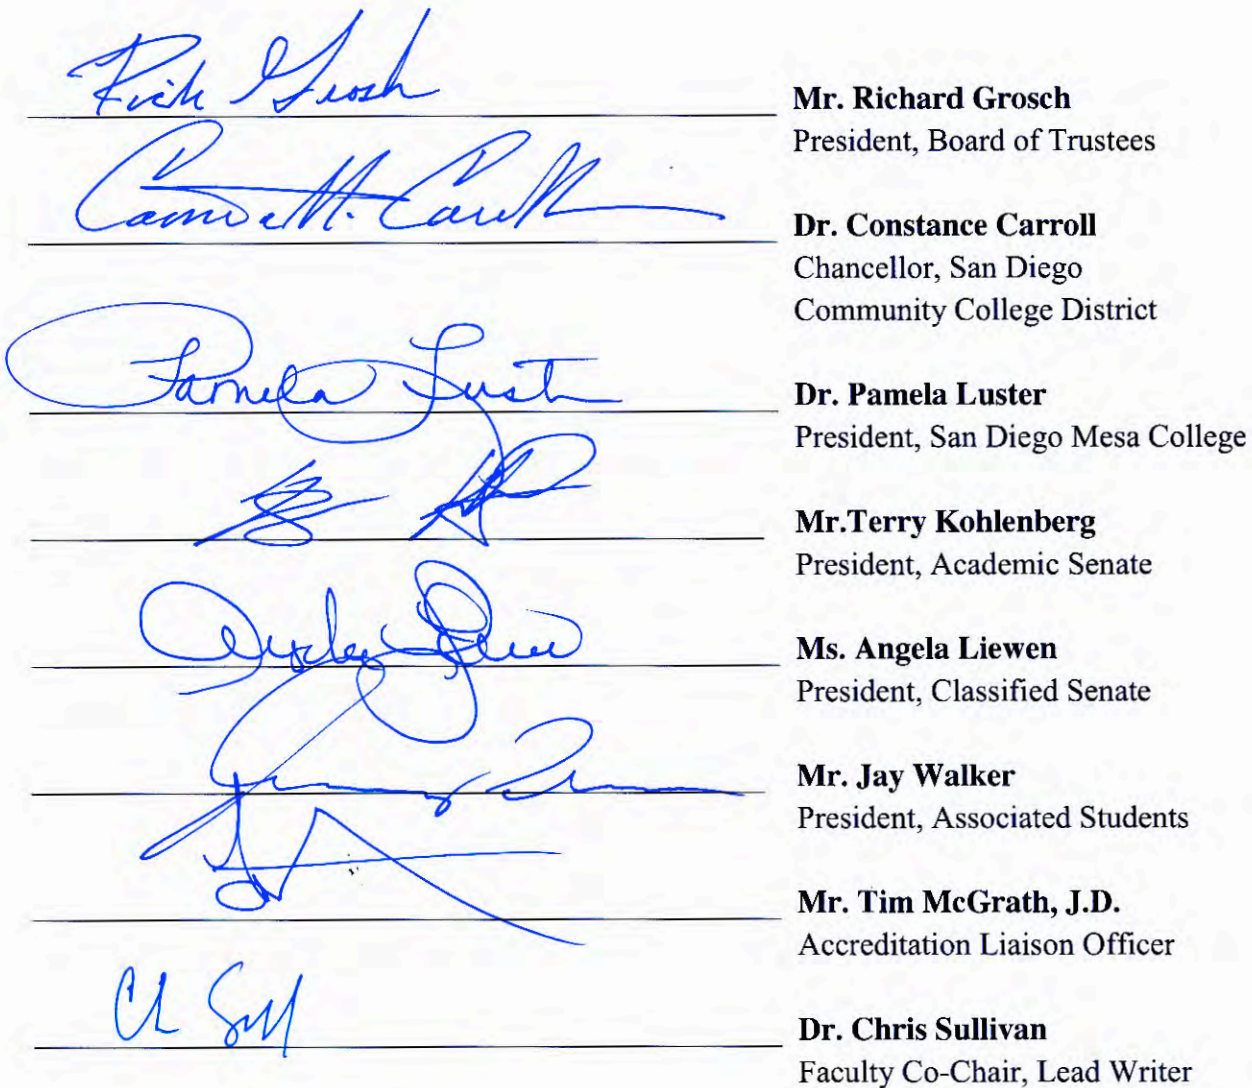 Rick Grosch
Mr. Richard Grosch
President, Board of Trustees
Constance M. Carroll
Dr. Constance Carroll
Chancellor, San Diego
Community College District
Pamela Luster
Dr. Pamela Luster
President, San Diego Mesa College
Mr.Terry Kohlenberg
President, Academic Senate
Ms. Angela Liewen
President, Classified Senate
Mr. Jay Walker
President, Associated Students
Mr. Tim McGrath, J.D.
Accreditation Liaison Officer
Dr. Chris Sullivan
Faculty Co-Chair, Lead Writer